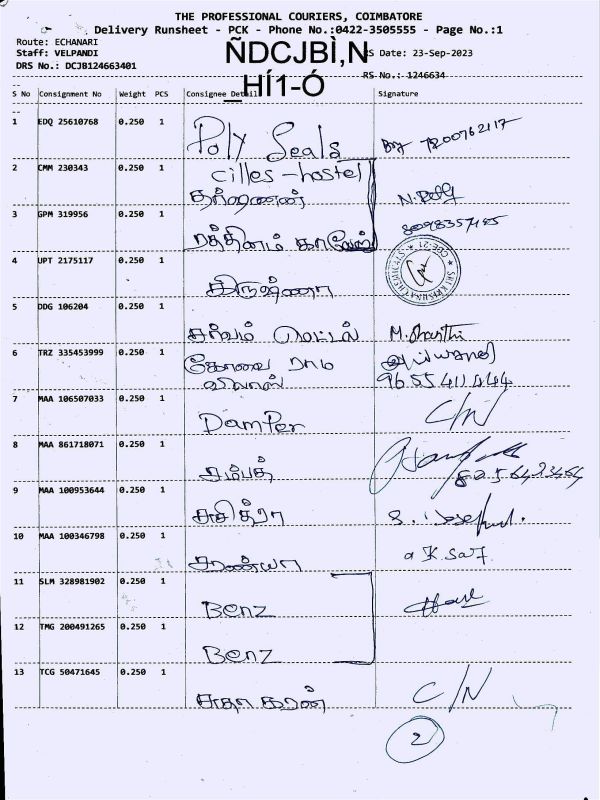 THE PROFESSIONAL COURIERS, COIMBATORE
Delivery Runsheet - PCK - Phone No.:0422-3505555 - Page No.:1
Route: ECHANARI
Staff: VELPANDI
ÑDCJBÌ,N
Date: 23-Sep-2023
DRS No.: DCJB124663401
HÍ1-Ó
RS No.: 1246634
S No Consignment No Weight PCS Consignee Detail Signature
1 EDQ 25610768 0.250 1 Poly Seals 7200762117
2 CMM 230343 0.250 1 cilles-hostel
3 GPM 319956 0.250 1 ரத்தினம் 8098357485
4 UPT 2175117 0.250 1 கிருஷ்ணா
5 DDG 106204 0.250 1 சர்வம் மெட்டல் M. Shanthi
6 TRZ 335453999 0.250 1 கோவை ராம விலாஸ் 9655411444
7 MAA 106507033 0.250 1 Damper C/N
8 MAA 861718071 0.250 1 சம்பத்
9 MAA 100953644 0.250 1 சுசித்ரா
10 MAA 100346798 0.250 1 சரண்யா
11 SLM 328981902 0.250 1 Benz
12 TMG 200491265 0.250 1 Benz
13 TCG 50471645 0.250 1 சுதாகரன் C/N
2